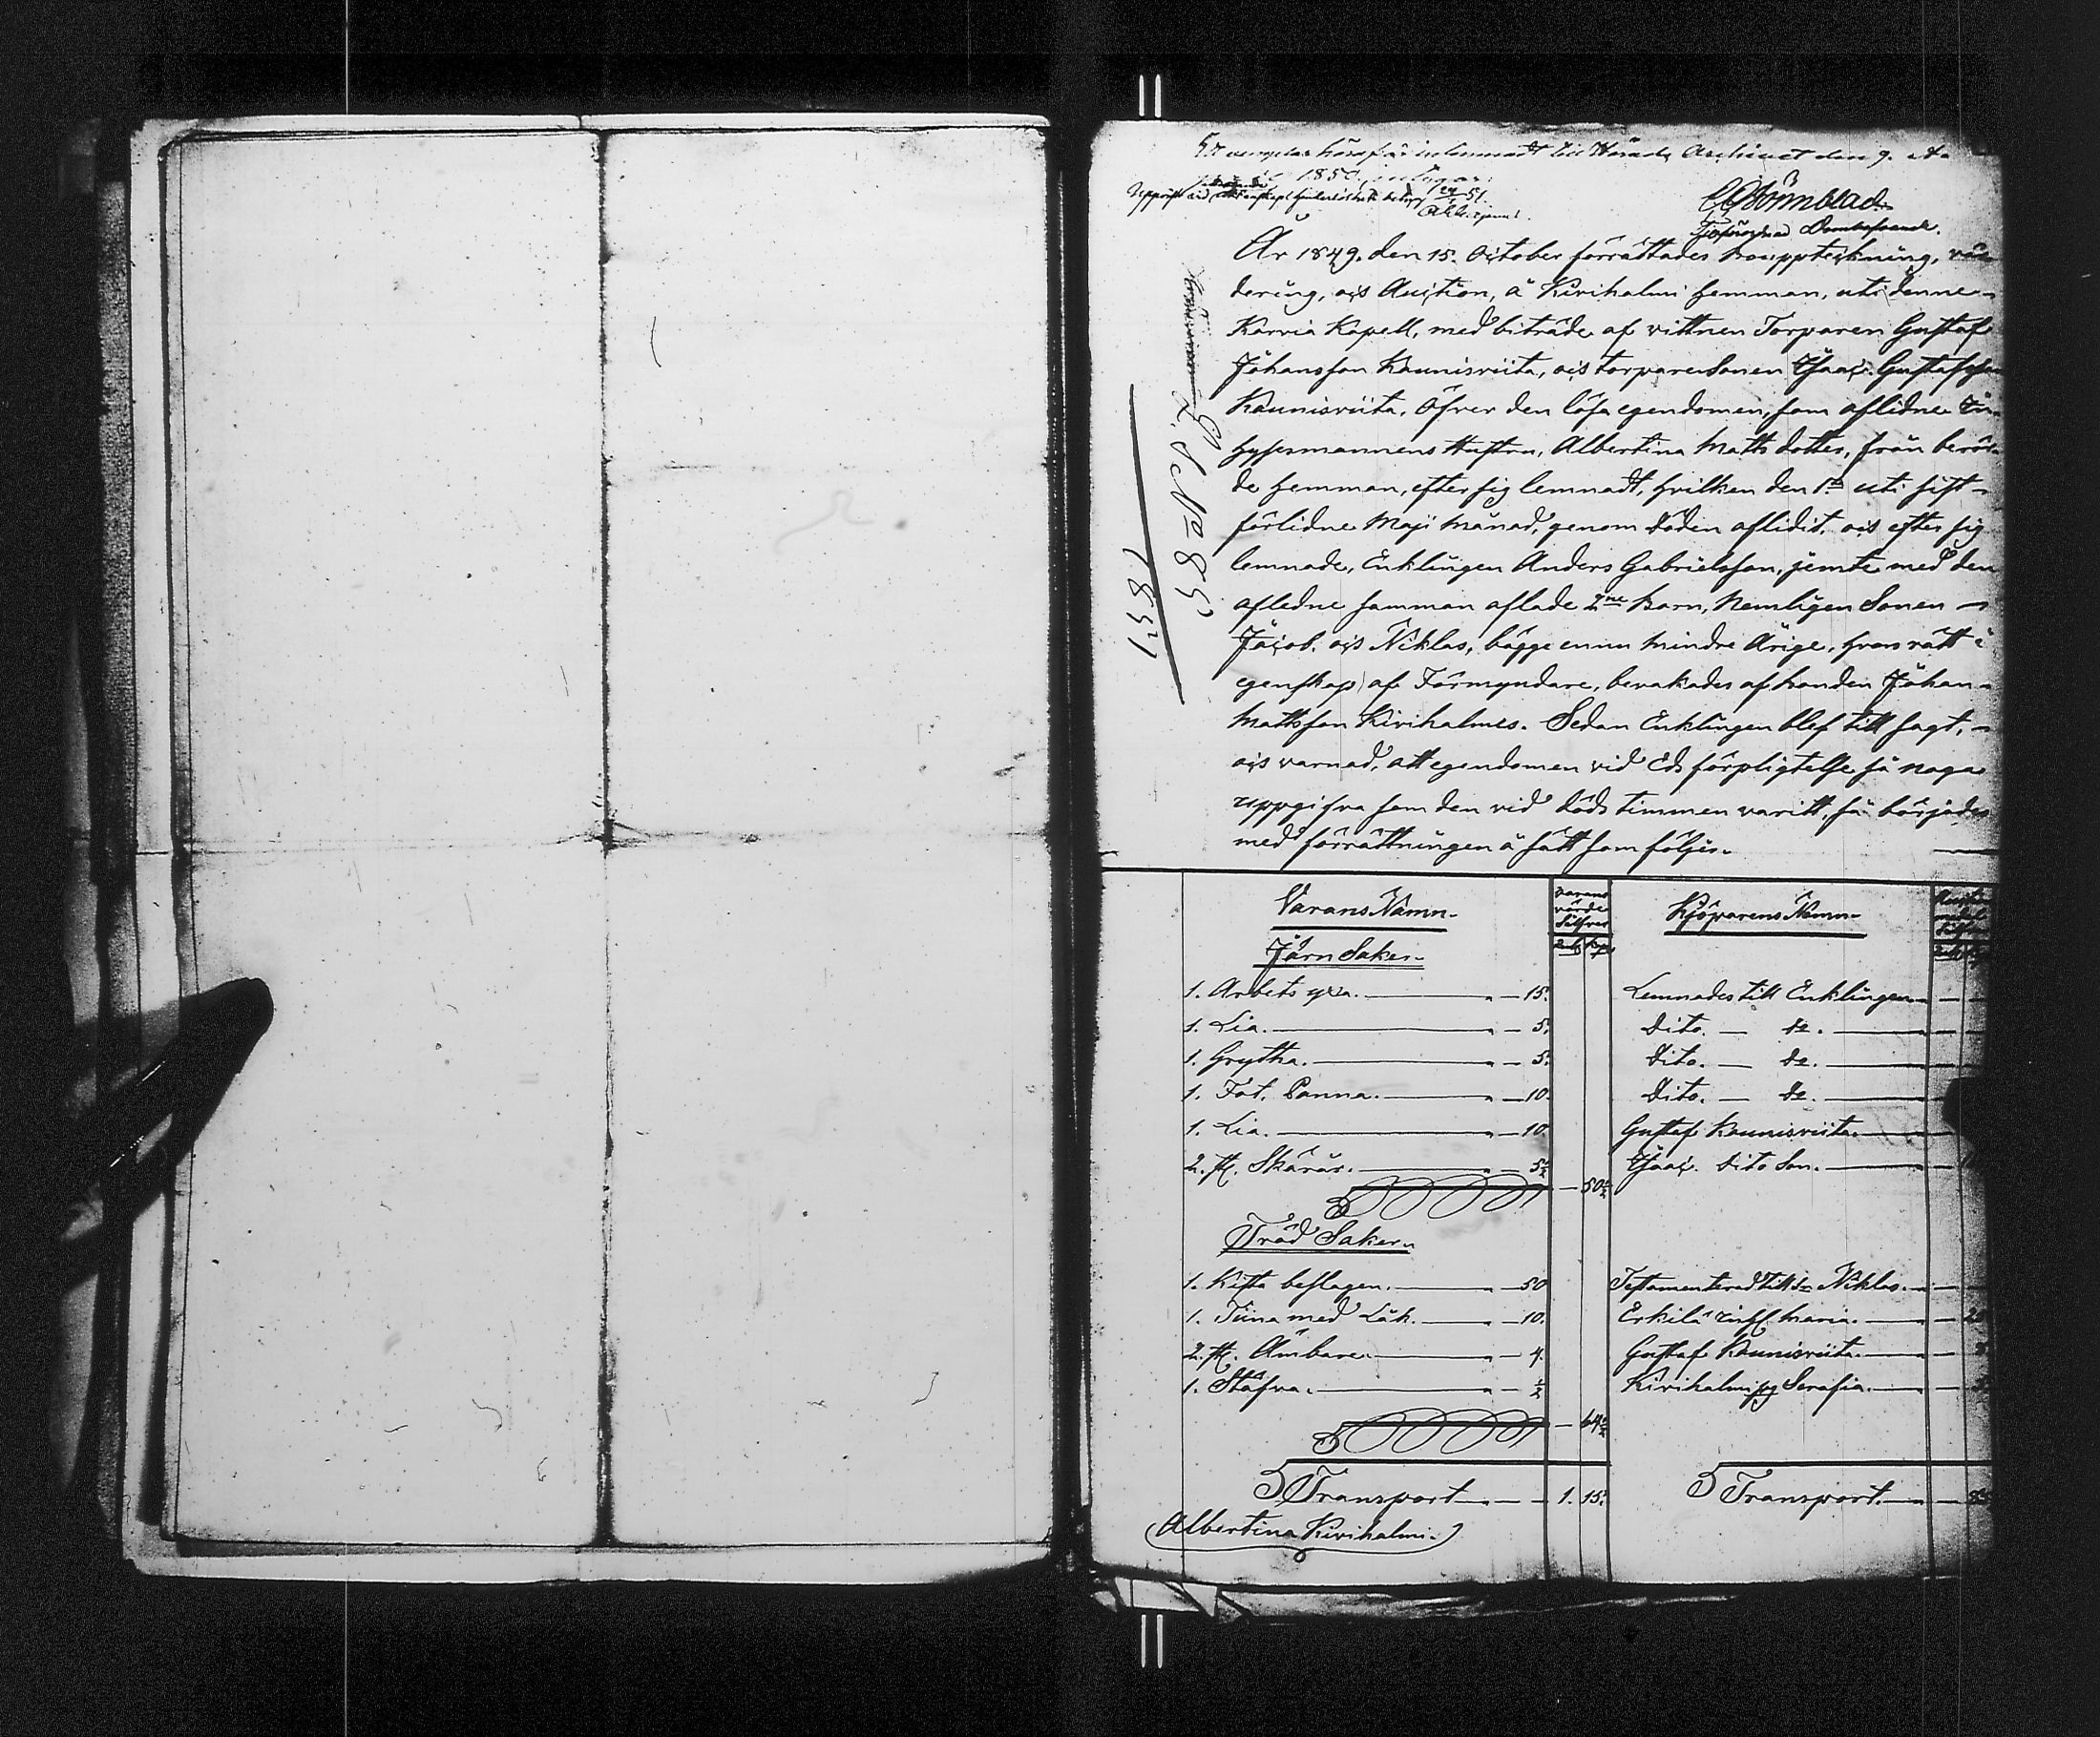 1850
C G Wörnblad
Domhafvande.
År 1849. den 15. October förrättades bouppteckning, vär-
dering, och Auction, å Kirihalmi hemman, uti denne
Karvia Kapell, med biträde af vittnen Torparen Gustaf
Johansson Kaunisviita, och torparesonen Isaac Gustafsson
Kaunisviita, öfver den lösa egendomen, som aflidne In-
hysesmannens Hustru, Albertina Matts dotter, från berör-
de hemman, efter sig lemnadt, hvilken den 1. uti sist-
förlidne Maji månad, genom döden aflidit, och efter sig
lemnade, Enklingen Anders Gabrielsson, jemte med den
afledne samman aflade 2ne barn, Nemligen Sonen
Jacob, och Niklas, bägge ennu mindre Årige, hvars rätt i
egenskap af Förmyndare, bevakades af bonden Johan
Mattsson Kirihalmes. Sedan Enklingen blef till sagt,
och varnad, att egendomen vid Eds förpligtelse så noga
uppgifva som den vid döds timmen varitt, så börjades
med förrättningen å sätt som följer.
No 855
1851
Varans Namn
Varans värde Silfver
Kjöparens Namn
Järn Saker
1. Arbets yxa. 15. Lemnades till Enklingen
1. Lia. 5. Dito. do.
1. Grytha. 5. Dito. do.
1. Fot. Panna. 10. Dito. do.
1. Lia. 10. Gustaf Kaunisviita
2. st. Skäror. 5½ Isaac Dito Son.
50½
Träd Saker
1. Kista beslagen. 50 Testamenterad till Niklas
1. Tiina med Låk. 10. Erkilä Maria
2. st. Ämbare 4. Gustaf Kaunisviita
1. Stäfva. ½ Kirihalmi Serafia
64½
Transport 1. 15. Transport
Albertina Kirihalmi